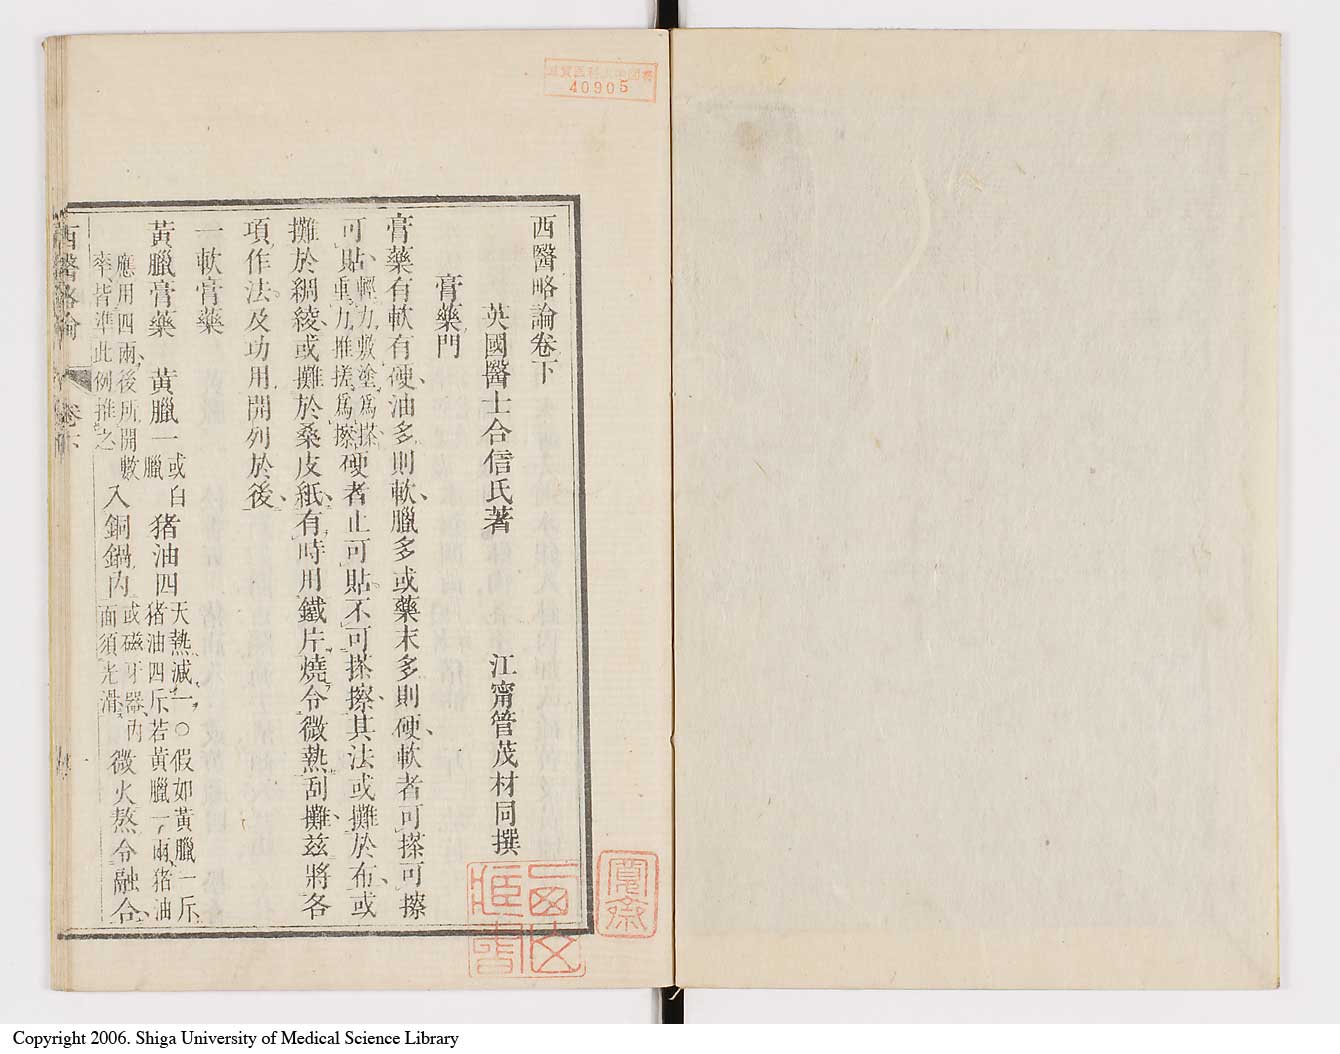 40905
西醫略論卷下
英國醫士合信氏著　江甯管茂材同撰
膏藥門
膏藥有軟有硬、油多則軟、臘多或藥末多則硬、軟者可搽可擦
可貼、輕力敷塗爲搽重力推搓爲擦硬者止可貼。不可搽擦、其法或攤於布、或
攤於綢綾、或攤於桑皮紙、有時用鐵片燒令微熱刮攤、茲將各
項作法。及功用開列於後、
一軟膏藥
黃臘膏藥　黃臘一或白臘猪油四天熱減一、○假如黃臘一斤猪油四斤若黃臘一兩、猪油
應用四兩、後所開數率、皆準此例推之入銅鍋內或磁牙器內面須光滑、微火熬令融合、
西醫略論
卷下
一
Copyright 2006. Shiga University of Medical Science Library